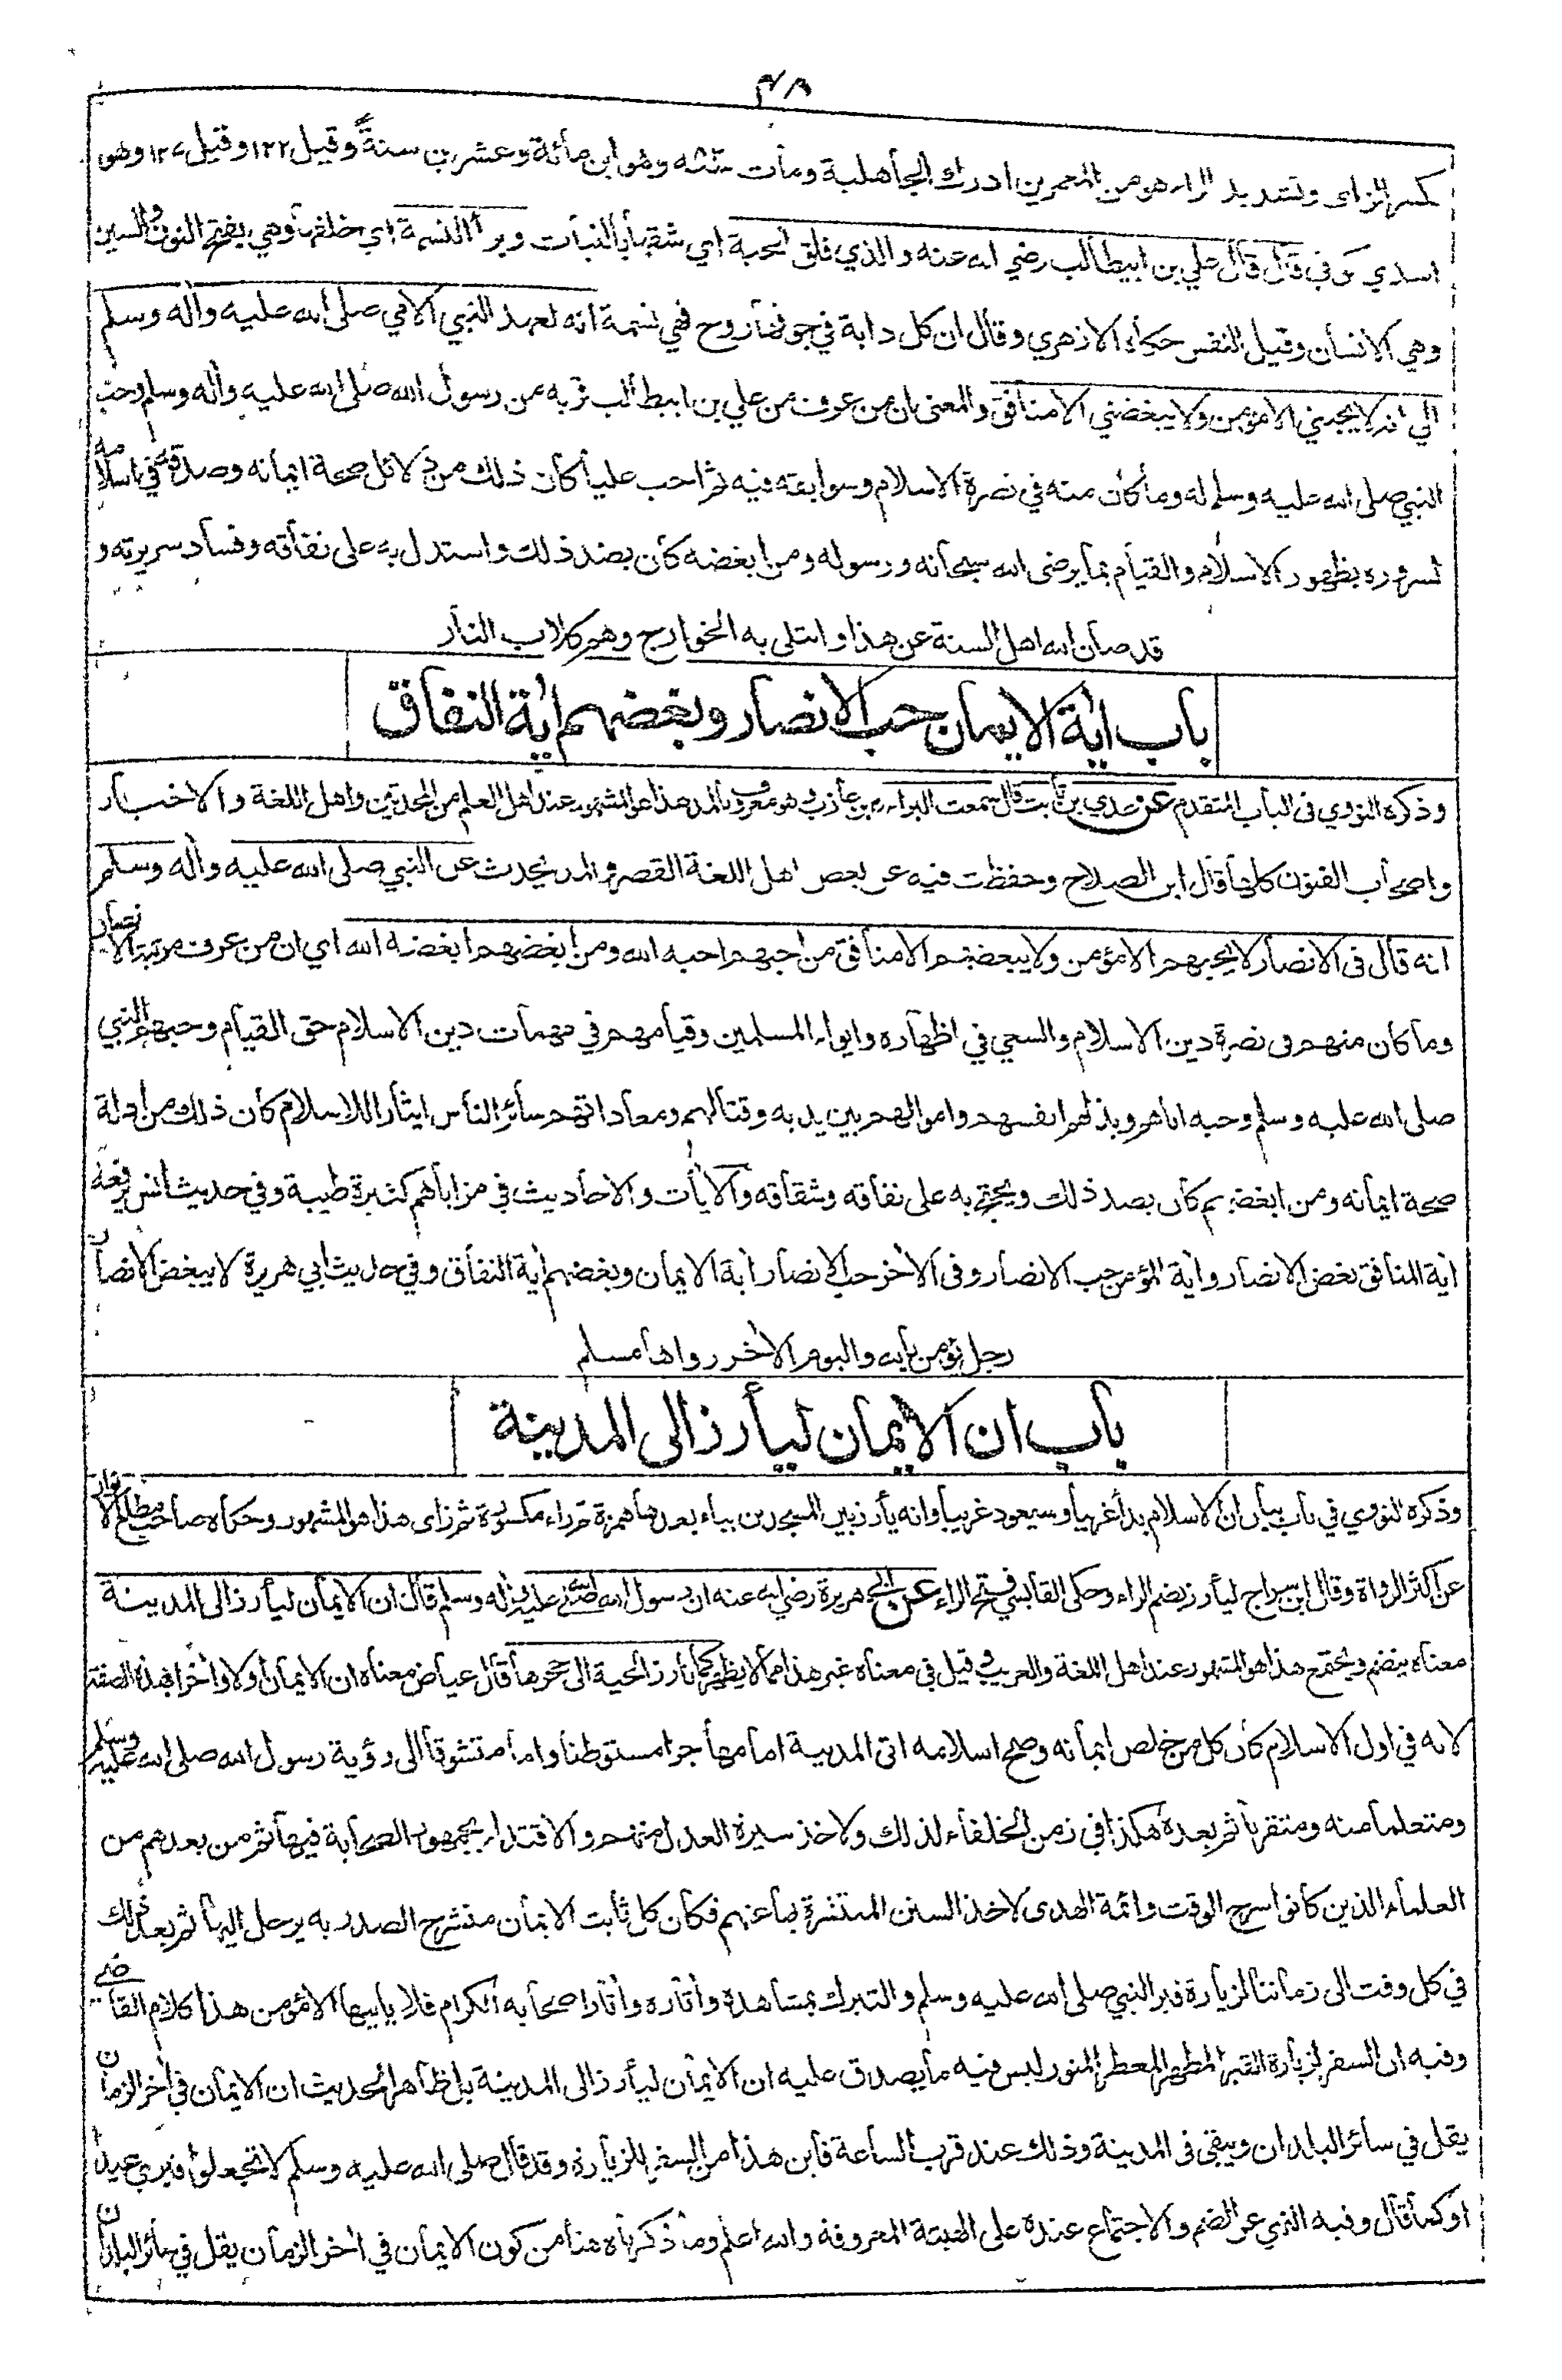 ٣٨
كسر الزاى وتشديد الراء هو من المعمرين ادرك الجاهلية ومات سنة وهو ابن مائة وعشرين سنة وقيل ١٢٢ وقيل ١٢٧ وهو
اسدي كوفي قال قال علي بن ابيطالب رضي الله عنه والذي فلق الحبة اي شقها بالنبات وبرأ النسمة اي خلقها وهي بفتح النون والسين
وهي الانسان وقيل النفس حكاه الازهري وقال ان كل دابة في جوفها روح فهي نسمة انه لعهد النبي الامي صلى الله عليه وأله وسلم
الي انه لا يحبني الا مؤمن ولا يبغضني الا منافق والمعنى ان من عرف من علي بن ابيطالب قربه من رسول الله صلى الله عليه وأله وسلم وحب
النبي صلى الله عليه وسلم له وما كان منه في نصرة الاسلام وسوابقه فيه ثم احب عليا كان ذلك من دلائل صحة ايمانه وصدقه في اسلامه
لسروره بظهور الاسلام والقيام بما يرضى الله سبحانه ورسوله ومن ابغضه كان بضد ذلك واستدل به على نفاقه وفساد سريرته و
قد صان الله اهل السنة عن هذا وابتلى به الخوارج وهم كلاب النار
باب اية الايمان حب الانصار وبغضهم اية النفاق
وذكره النووي في الباب المتقدم عن عدي بن ثابت قال سمعت البراء بن عازب وهو معروف بالمد هذا هو المشهور عند اهل العلم من المحدثين واهل اللغة والاخبار
واصحاب الفنون كلها قال ابن الصلاح وحفظت فيه عن بعض اهل اللغة القصر والمد يحدث عن النبي صلى الله عليه وأله وسلم
انه قال في الانصار لا يحبهم الا مؤمن ولا يبغضهم الا منافق من احبهم احبه الله ومن ابغضهم ابغضه الله اي ان من عرف مرتبة الانصار
وما كان منهم في نصرة دين الاسلام والسعي في اظهاره وايواء المسلمين وقيامهم في مهمات دين الاسلام حق القيام وحبهم النبي
صلى الله عليه وسلم وحبه اياهم وبذلهم انفسهم واموالهم بين يديه وقتالهم ومعاداتهم سائر الناس ايثارا للاسلام كان ذلك من ادلة
صحة ايمانه ومن ابغضهم كان بضد ذلك ويحتج به على نفاقه وشقاقه والأيات والاحاديث في مزاياهم كثيرة طيبة وفي حديث انس يرفعه
اية المنافق بغض الانصار واية المؤمن حب الانصار وفي الأخر حب الانصار اية الايمان وبغضهم اية النفاق وفي حديث ابي هريرة لا يبغض الانصار
رجل يؤمن بالله واليوم الأخر رواها مسلم
باب ان الايمان ليأرز الى المدينة
وذكره النووي في باب بيان ان الاسلام بدأ غريبا وسيعود غريبا وانه يأرز بين المسجدين بياء بعدها همزة ثم راء مكسورة ثم زاى هذا هو المشهور وحكاه صاحب مطالع الانوار
عن اكثر الرواة وقال ابن سراج ليأرز بضم الراء وحكى القابسي فتح الراء عن ابي هريرة رضي الله عنه ان رسول الله صلى الله عليه وأله وسلم قال ان الايمان ليأرز الى المدينة
معناه ينضم ويجتمع هذا هو المشهور عند اهل اللغة والغريب وقيل في معناه غير هذا مما لا يظهر كما يأرز الحية الى جحرها قال عياض معناه ان الايمان اولا وأخرا بهذه الصفة
لانه في اول الاسلام كان كل من خلص ايمانه وصح اسلامه اتى المدينة اما مهاجرا مستوطنا واما متشوقا الى رؤية رسول الله صلى الله عليه وسلم
ومتعلما منه ومتقربا ثم بعده هكذا في زمن الخلفاء لذلك ولاخذ سيرة العدل منهم والاقتداء بجمهور الصحابة فيها ثم من بعدهم من
العلماء الذين كانوا سرج الوقت وائمة الهدى لاخذ السنن المنتشرة بها عنهم فكان كل ثابت الايمان منشرح الصدر به يرحل اليها ثم بعد ذلك
في كل وقت الى زماننا لزيارة قبر النبي صلى الله عليه وسلم والتبرك بمشاهده وأثاره وأثار اصحابه الكرام فلا يأتيها الا مؤمن هذا كلام القاضي
وفيه ان السفر لزيارة القبر المطهر المعطر المنور ليس فيه ما يصدق عليه ان الايمان ليأرز الى المدينة بل ظاهر الحديث ان الايمان في أخر الزمان
يقل في سائر البلدان ويبقى في المدينة وذلك عند قرب الساعة فأين هذا من السفر للزيارة وقد قال صلى الله عليه وسلم لا تجعلوا قبري عيدا
او كما قال وفيه النهي عن الضم والاجتماع عنده على الهيئة المعروفة والله اعلم وما ذكرناه هنا من كون الايمان في أخر الزمان يقل في سائر البلدان